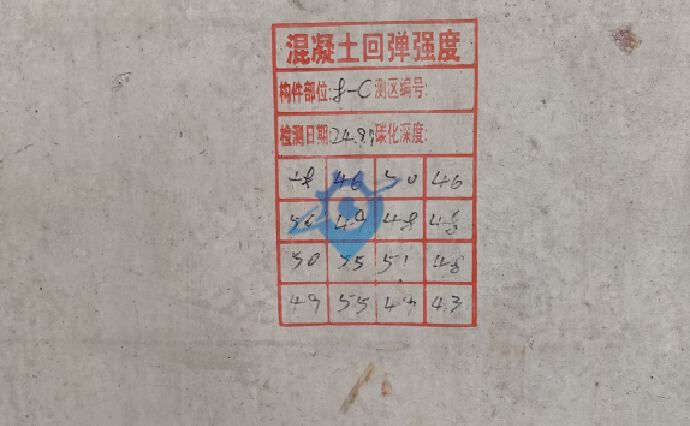 混凝土回弹强度
构件部位:8-C 测区编号:
检测日期:24.9.9 碳化深度:
48 46 50 46
50 49 48
50 55 51 48
49 55 49 43